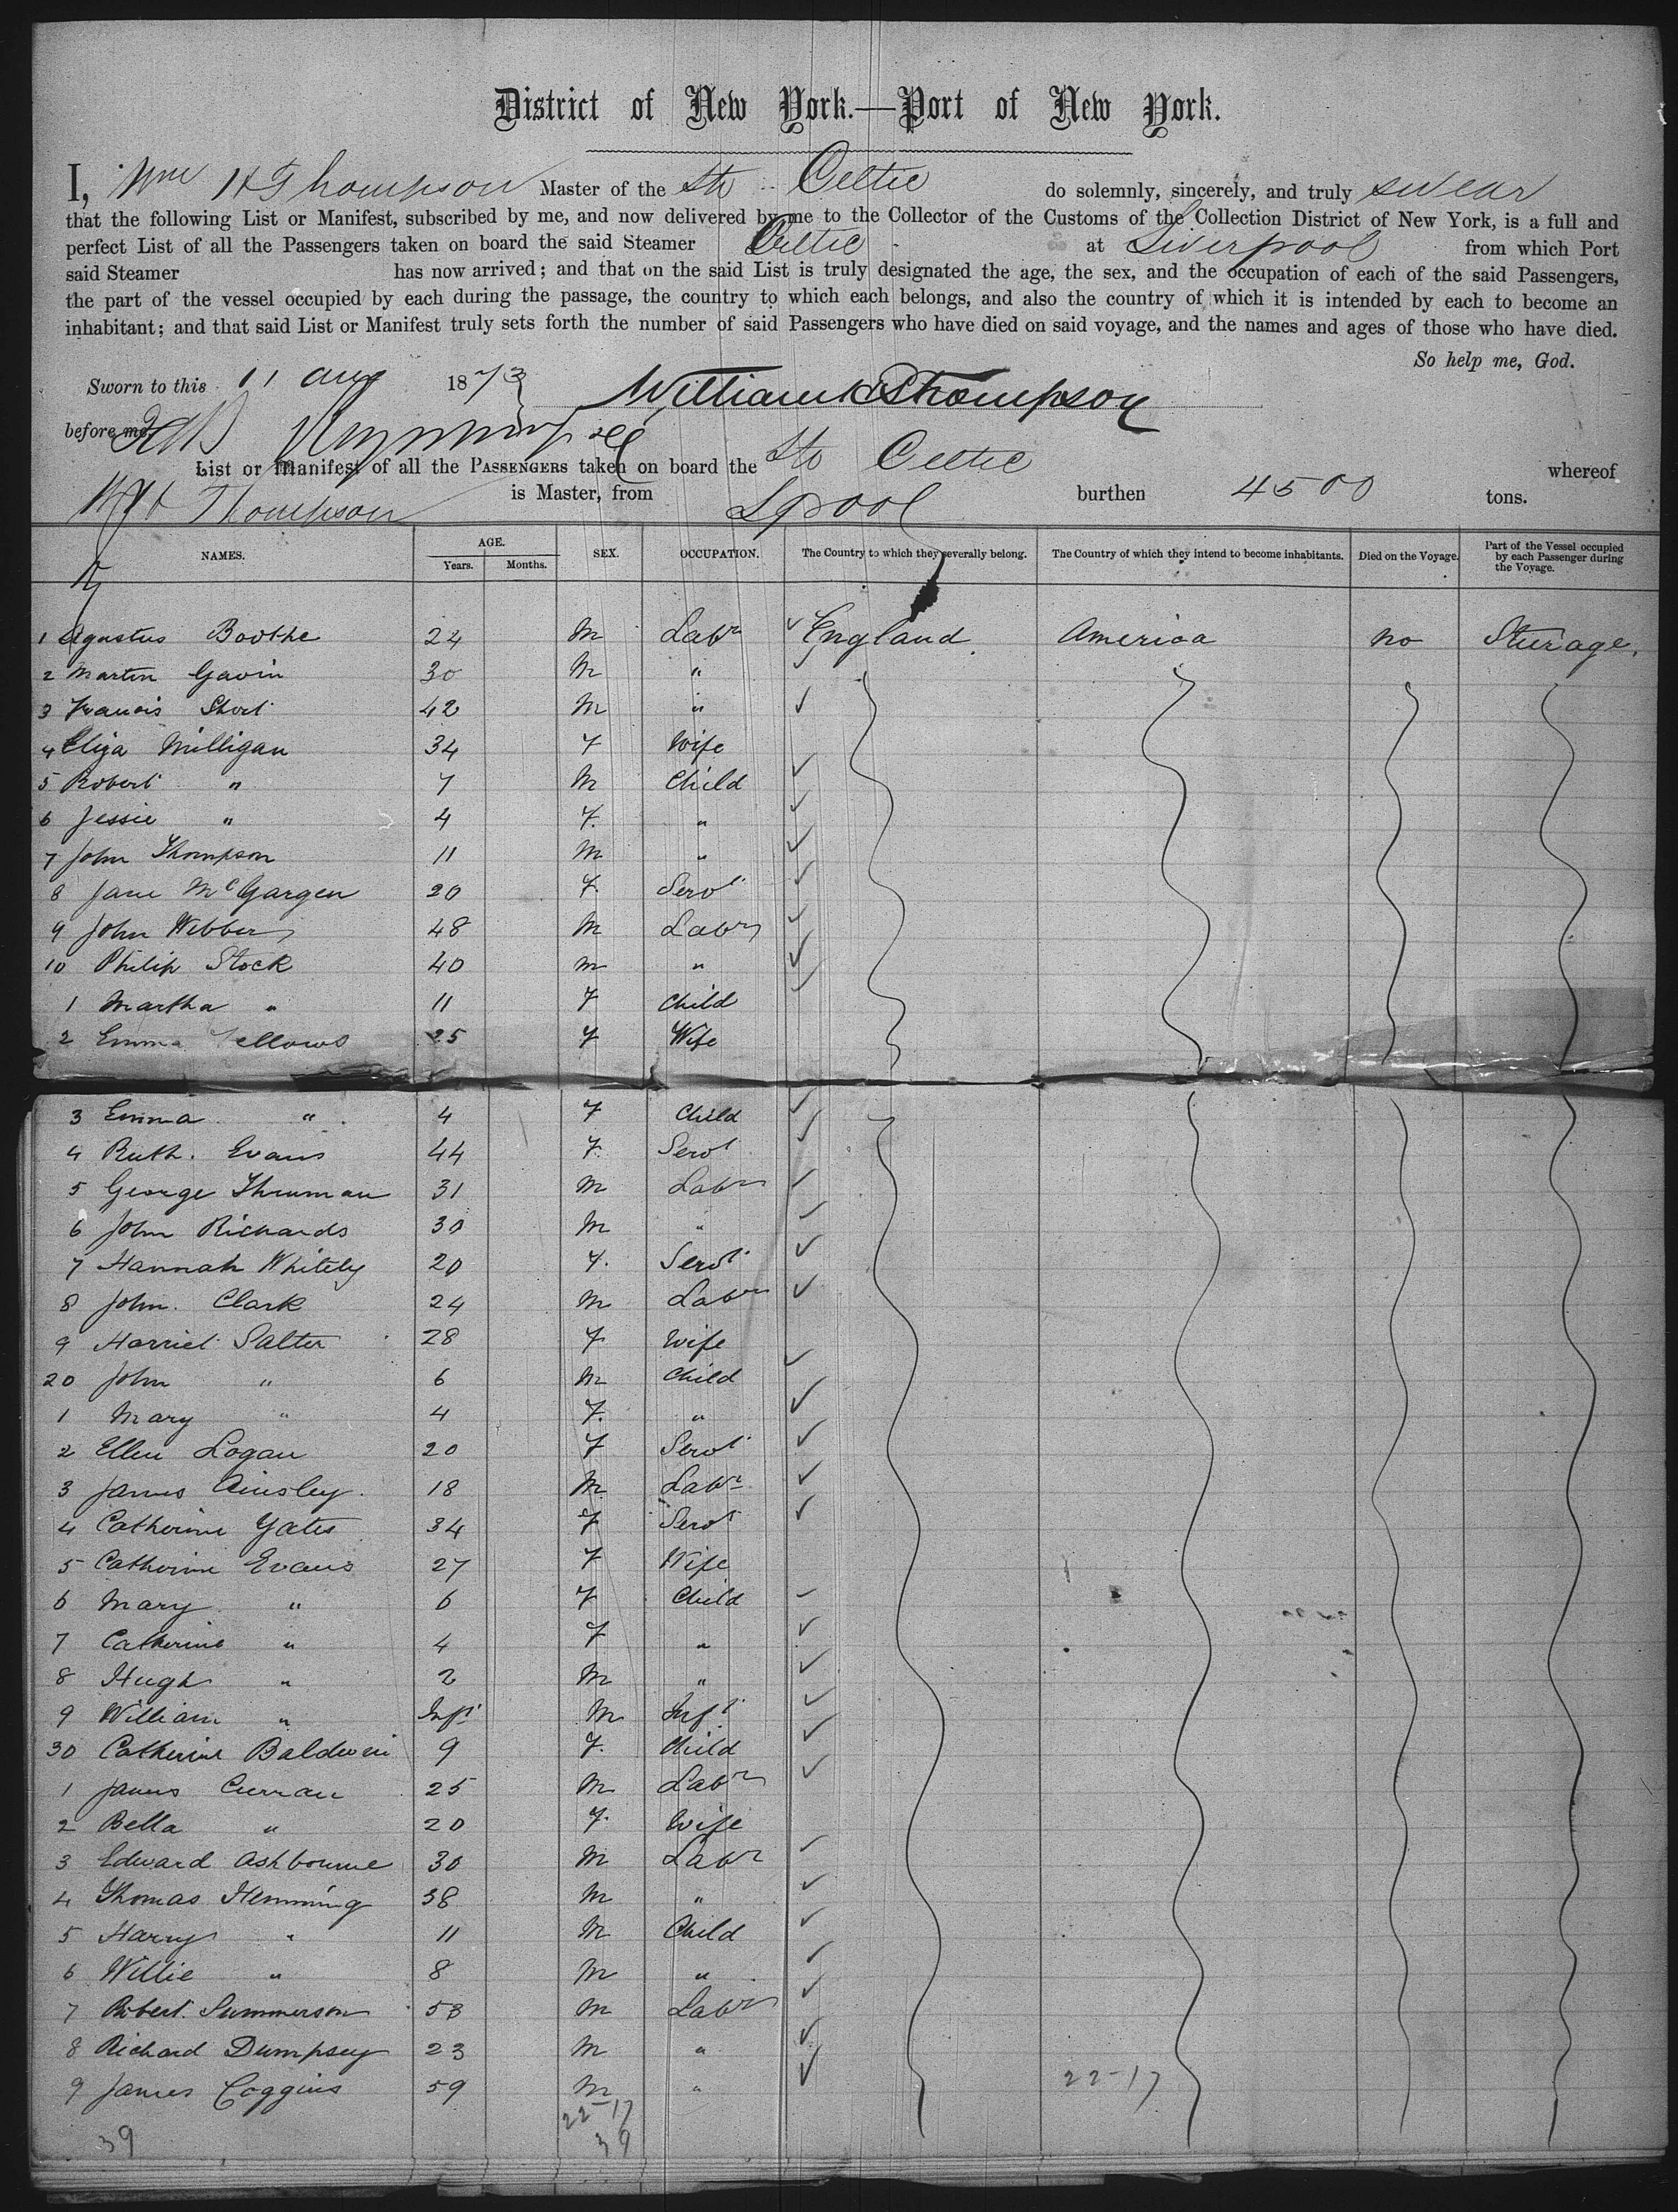 District of New York.—Port of New York.
I, Wm H Thompson Master of the Str Celtic do solemnly, sincerely, and truly swear
that the following List or Manifest, subscribed by me, and now delivered by me to the Collector of the Customs of the Collection District of New York, is a full and
perfect List of all the Passengers taken on board the said Steamer Celtic at Liverpool from which Port
said Steamer has now arrived; and that on the said List is truly designated the age, the sex, and the occupation of each of the said Passengers,
the part of the vessel occupied by each during the passage, the country to which each belongs, and also the country of which it is intended by each to become an
inhabitant; and that said List or Manifest truly sets forth the number of said Passengers who have died on said voyage, and the names and ages of those who have died.
So help me, God.
Sworn to this 11 Aug 1873
William H Thompson
before me,
List or Manifest of all the PASSENGERS taken on board the Str Celtic whereof
W H Thompson is Master, from Lpool burthen 4500 tons.
NAMES. AGE. Years. Months. SEX. OCCUPATION. The Country to which they severally belong. The Country of which they intend to become inhabitants. Died on the Voyage. Part of the Vessel occupied by each Passenger during the Voyage.
1 Agustus Boothe 24 M Labr England America no Steerage.
2 Martin Gavin 30 M "
3 Francis Short 42 M "
4 Eliza Milligan 34 F Wife
5 Robert " 7 M Child
6 Jessie " 4 F. "
7 John Thompson 11 M "
8 Jane McGargen 20 F. Servt
9 John Webber 48 M Labr
10 Philip Stock 40 m "
1 Martha " 11 F Child
2 Emma Fellows 25 F Wife
3 Emma " 4 F Child
4 Ruth. Evans 44 F. Servt
5 George Thruman 31 M Labr
6 John Richards 30 M "
7 Hannah Whitely 20 F. Servt
8 John. Clark 24 M Labr
9 Harriet Salter 28 F Wife
20 John " 6 M Child
1 Mary " 4 F. "
2 Ellen Logan 20 F Servt
3 James Ainsley. 18 M Labr
4 Catherine Yates 34 F Servt
5 Catherine Evans 27 F Wife
6 Mary " 6 F Child
7 Catherine " 4 F "
8 Hugh " 2 M "
9 William " Inft M Inft
30 Catherine Baldwin 9 F. Child
1 James Curran 25 M Labr
2 Bella " 20 F. Wife
3 Edward Ashbourne 30 M Labr
4 Thomas Hemming 38 M "
5 Harry " 11 M Child
6 Willie " 8 M "
7 Robert. Summerson 53 M Labr
8 Richard Dumpsey 23 M "
9 James Coggins 59 M " 22-17
22-17
39 39